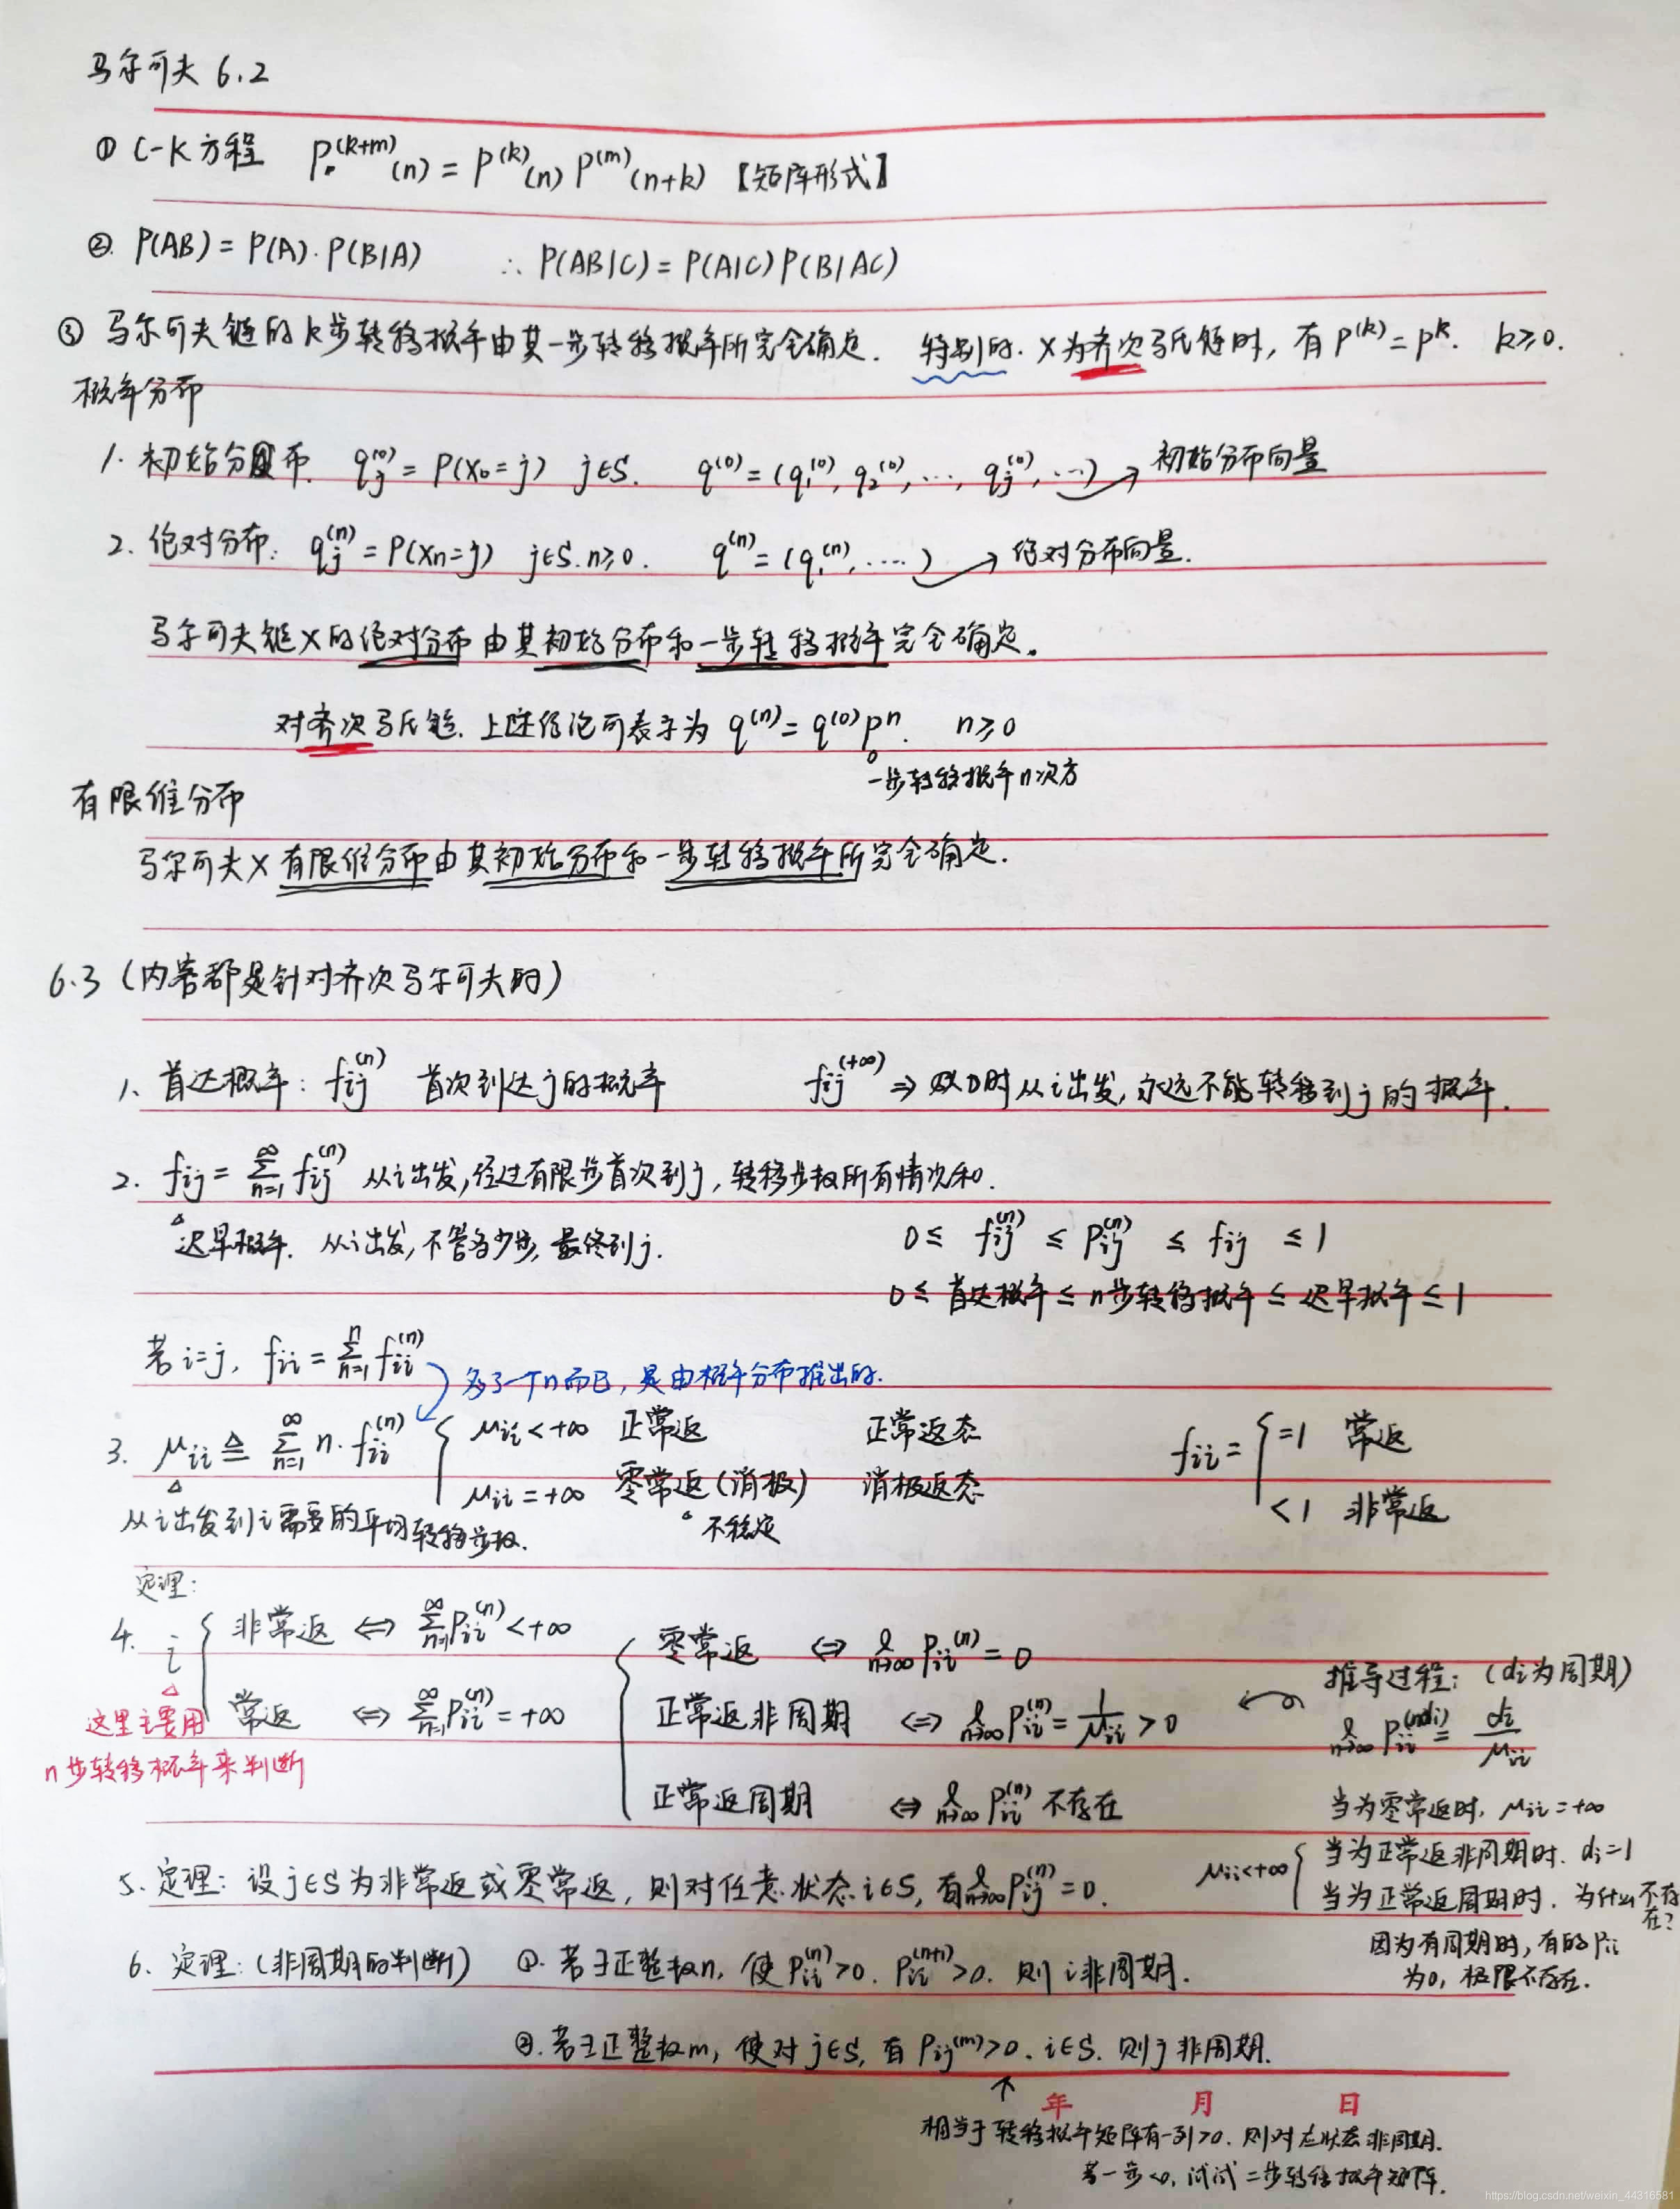 马尔可夫 6.2
① C-K方程 P^(k+m)(n) = P^(k)(n) P^(m)(n+k) 【矩阵形式】
② P(AB) = P(A)·P(B|A) ∴ P(AB|C) = P(A|C)P(B|AC)
③ 马尔可夫链的k步转移概率由其一步转移概率所完全确定. 特别的. X为齐次马氏链时, 有 P^(k) = P^k. k≥0.
概率分布
1. 初始分布. q_j^(0) = P(X_0=j) j∈S. q^(0) = (q_1^(0), q_2^(0), ..., q_j^(0), ...) → 初始分布向量
2. 绝对分布: q_j^(n) = P(X_n=j) j∈S. n≥0. q^(n) = (q_1^(n), ....) → 绝对分布向量.
马尔可夫链X的绝对分布由其初始分布和一步转移概率完全确定.
对齐次马氏链. 上述结论可表示为 q^(n) = q^(0)P^n. n≥0
一步转移概率n次方
有限维分布
马尔可夫X有限维分布由其初始分布和一步转移概率所完全确定.
6.3 (内容都是针对齐次马尔可夫的)
1. 首达概率: f_ij^(n) 首次到达j的概率 f_ij^(+∞) ⇒ 从0时从i出发, 永远不能转移到j的概率.
2. f_ij = ∑_{n=1}^∞ f_ij^(n) 从i出发, 经过有限步首次到j, 转移步数所有情况和.
迟早概率. 从i出发, 不管多少步, 最终到j. 0 ≤ f_ij^(n) ≤ P_ij^(n) ≤ f_ij ≤ 1
0 ≤ 首达概率 ≤ n步转移概率 ≤ 迟早概率 ≤ 1
若i=j, f_ii = ∑_{n=1}^n f_ii^(n)
多了一个n而已, 是由概率分布推出的.
3. μ_ii ≜ ∑_{n=1}^∞ n·f_ii^(n) { μ_ii < +∞ 正常返 正常返态 f_ii = { =1 常返
μ_ii = +∞ 零常返(消极) 消极返态 <1 非常返
不稳定
从i出发到i需要的平均转移步数.
定理:
4. i { 非常返 ⇔ ∑_{n=1}^∞ P_ii^(n) < +∞
常返 ⇔ ∑_{n=1}^∞ P_ii^(n) = +∞
这里主要用
n步转移概率来判断
{ 零常返 ⇔ l_{n→∞} P_ii^(n) = 0
正常返非周期 ⇔ l_{n→∞} P_ii^(n) = 1/μ_ii > 0
正常返周期 ⇔ l_{n→∞} P_ii^(n) 不存在
推导过程: (d_i为周期)
l_{n→∞} P_ii^(nd_i) = d_i/μ_ii
当为零常返时, μ_ii = +∞
μ_ii<+∞ { 当为正常返非周期时. d_i=1
当为正常返周期时. 为什么不存
在?
因为有周期时, 有的P_ii
为0, 极限不存在.
5. 定理: 设j∈S为非常返或零常返, 则对任意状态i∈S, 有 l_{n→∞} P_ij^(n) = 0.
6. 定理: (非周期的判断) ①. 若∃正整数n, 使P_ii^(n)>0. P_ii^(n+1)>0. 则i非周期.
②. 若∃正整数m, 使对j∈S, 有P_ij^(m)>0. i∈S. 则j非周期.
年 月 日
相当于转移概率矩阵有一列>0. 则对应状态非周期.
若一步<0, 试试二步转移概率矩阵.
https://blog.csdn.net/weixin_44316581